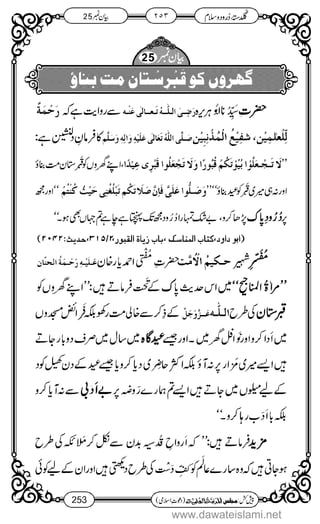 بیان نمبر 25 ۲۵۳ گلدستۂ دُرود و سلام
بیان نمبر 25
گھروں کو قبرستان مت بناؤ
حضرتِ سَیِّدُنا ابو ہریرہ رَضِیَ اللّٰہُ تَعَالٰی عَنْہ سے روایت ہے کہ رَحْمَۃٌ
لِّلْعٰلَمِیْن، شَفِیْعُ الْمُذْنِبِیْن صَلَّی اللّٰہُ تَعَالٰی عَلَیْہِ وَاٰلِہٖ وَسَلَّم کا فرمانِ دلنشین ہے:
’’لَا تَجْعَلُوْا بُیُوْتَکُمْ قُبُوْرًا وَلَا تَجْعَلُوْا قَبْرِیْ عِیْدًا، اپنے گھروں کو قبرستان مت بناؤ
اور نہ ہی میری قبر کو عید بناؤ‘‘ ’’وَصَلُّوْا عَلَیَّ فَاِنَّ صَلَاتَکُمْ تَبْلُغُنِیْ حَیْثُ کُنْتُمْ‘‘ اور مجھ
پر دُرُودِ پاک پڑھا کرو، بے شک تمہارا درود مجھ تک پہنچتا ہے چاہے تم جہاں بھی ہو۔‘‘
(ابو داود، کتاب المناسک، باب زیاة القبور، ۳۱۵/۲، حدیث: ۲۰۴۲)
مُفَسِّرِ شہیر حکیمُ الْاُمَّت حضرتِ مُفتی احمد یار خان عَلَیْہِ رَحْمَۃُ الحَنَّان
’’مراٰۃُ المناجیح‘‘ میں اس حدیثِ پاک کے تحت فرماتے ہیں: ’’اپنے گھروں کو
قبرستان کی طرح اللّٰہ عَزَّوَجَلَّ کے ذِکر سے خالی مت رکھو بلکہ فرائض مسجدوں
میں ادا کرو اور نوافل گھر میں۔ اور جیسے عیدگاہ میں سال میں صرف دو بار جاتے
ہیں ایسے میری مزار پر نہ آؤ بلکہ اکثر حاضری دیا کرو یا جیسے عید کے دن کھیل کود
کے لیے میلوں میں جاتے ہیں ایسے تم ہمارے روضہ پر بے اَدَبی سے نہ آیا کرو
بلکہ با اَدَب رہا کرو۔‘‘
مزید فرماتے ہیں: ’’کہ ارواحِ قُدسیہ بدن سے نکل کر ملائکہ کی طرح
ہو جاتی ہیں کہ وہ سارے عالَم کو کفِ دَست کی طرح دیکھتی ہیں اور ان کے لیے کوئی
پیش کش: مجلس اَلْمَدِیْنَۃُ الْعِلْمِیَّۃ (دعوتِ اسلامی) 253
www.dawateislami.net